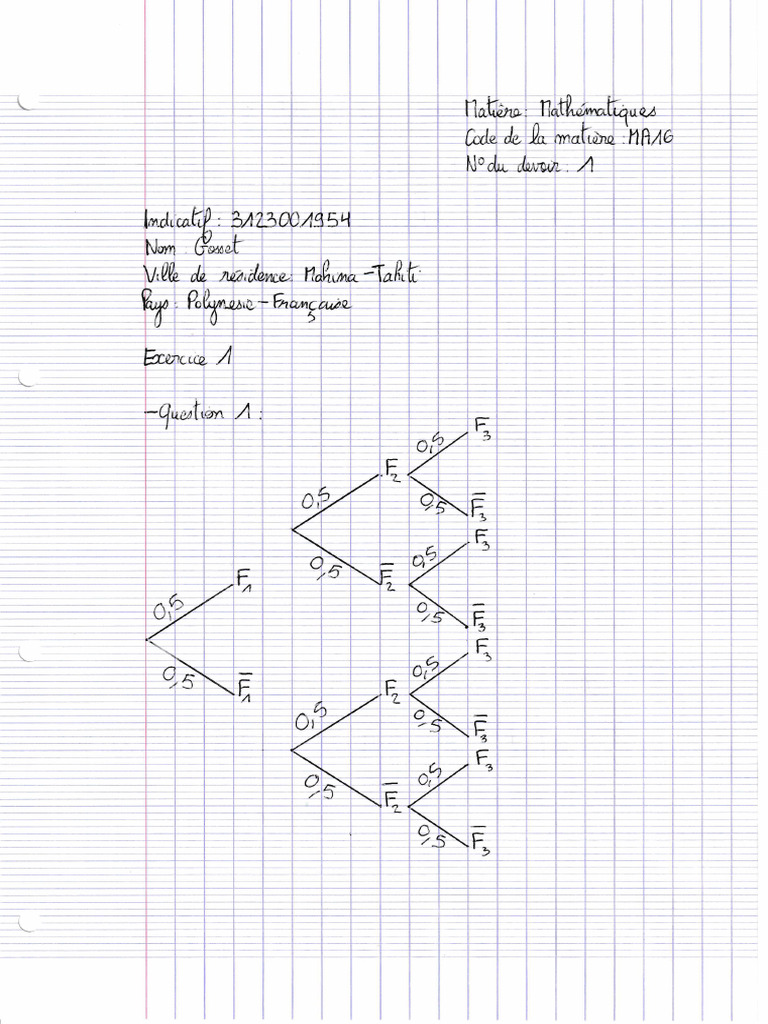 Matière: Mathématiques
Code de la matière: MA16
N° du devoir: 1
Indicatif: 3123001954
Nom: Gosset
Ville de résidence: Mahina-Tahiti
Pays: Polynesie-Française
Exercice 1
-Question 1:
F₃
0,5
F₂
0,5
0,5
F̅₃
F₃
0,5
0,5
F̅₂
0,5
F̅₃
F₁
0,5
0,5
F̅₁
F₃
0,5
F₂
0,5
0,5
F̅₃
F₃
0,5
0,5
F̅₂
0,5
F̅₃